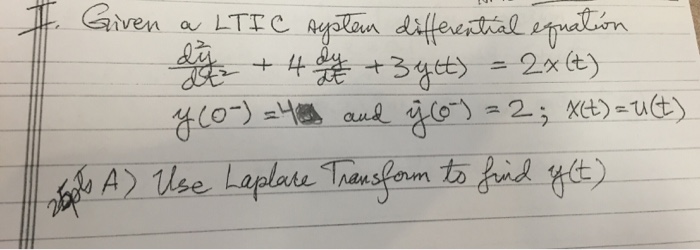 I. Given a LTIC system differential equation
d²y/dt² + 4 dy/dt + 3y(t) = 2x(t)
y(0⁻) = 4 and ẏ(0⁻) = 2; x(t) = u(t)
A) Use Laplace Transform to find y(t)